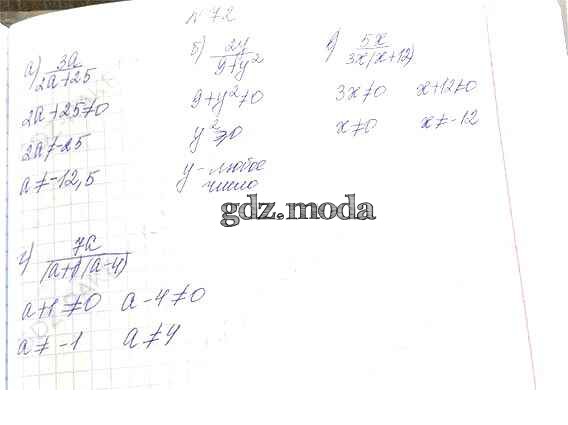 № 72
а) 3a / 2a+25
2a+25≠0
2a≠-25
a≠-12,5
б) 2y / 9+y²
9+y²≠0
y²≥0
y - любое
число
в) 5x / 3x(x+12)
3x≠0 x+12≠0
x≠0 x≠-12
gdz.moda
г) 7a / (a+1)(a-4)
a+1≠0 a-4≠0
a≠-1 a≠4